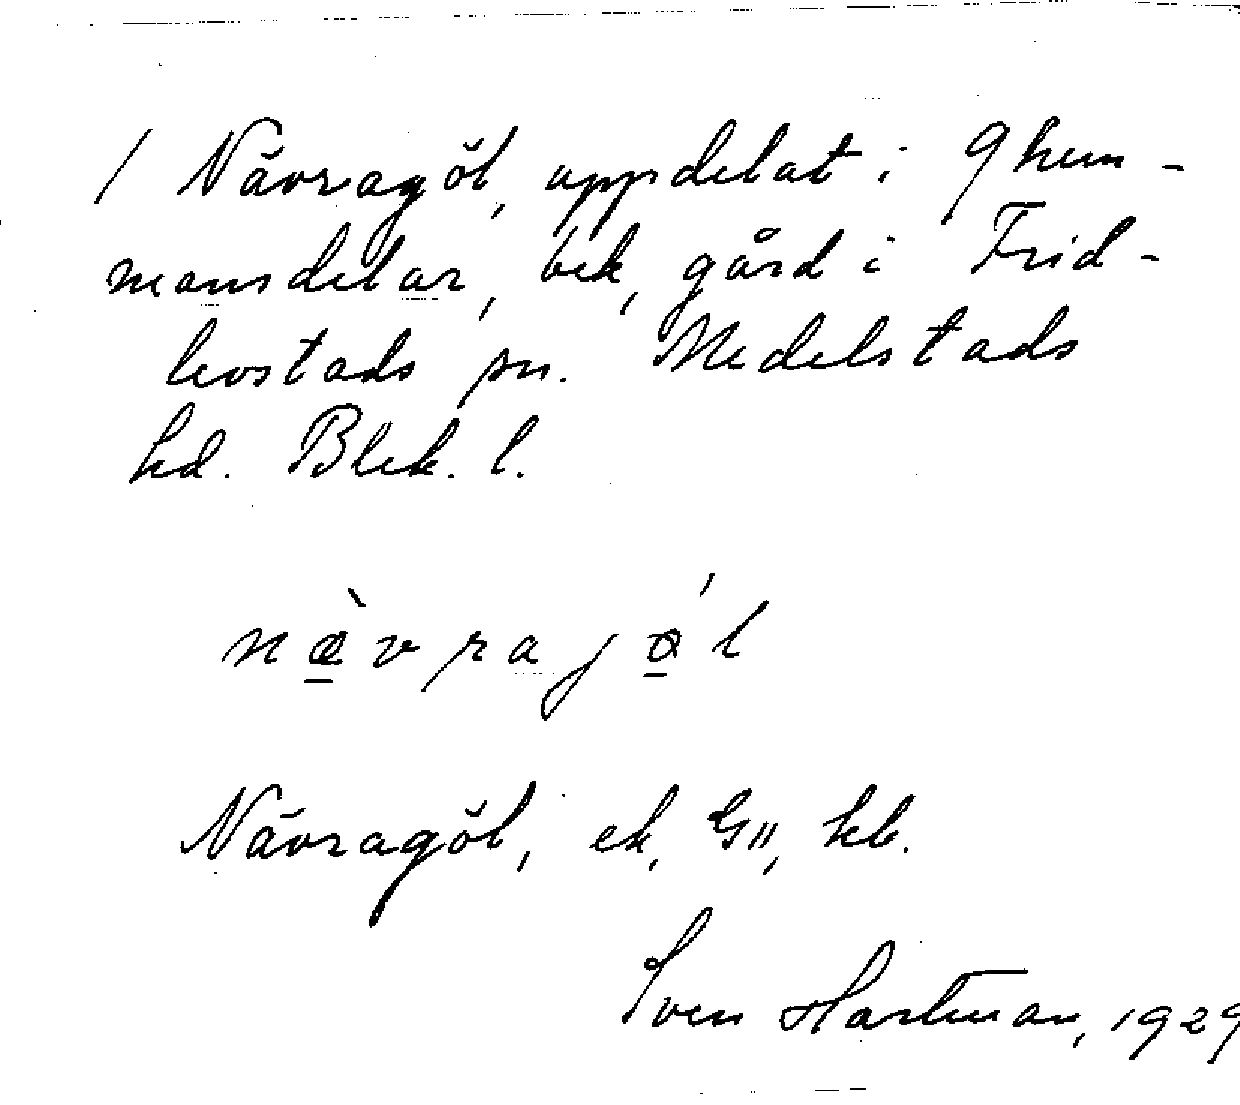 / Nävragöl, uppdelat i 9 hem-
mansdelar, bek, gård i Frid-
levstads sn. Medelstads
hd. Blek. l.
næ̱̀vrajǿ̱l
Nävragöl, ek, G11, kb.
Sven Hartman, 1929